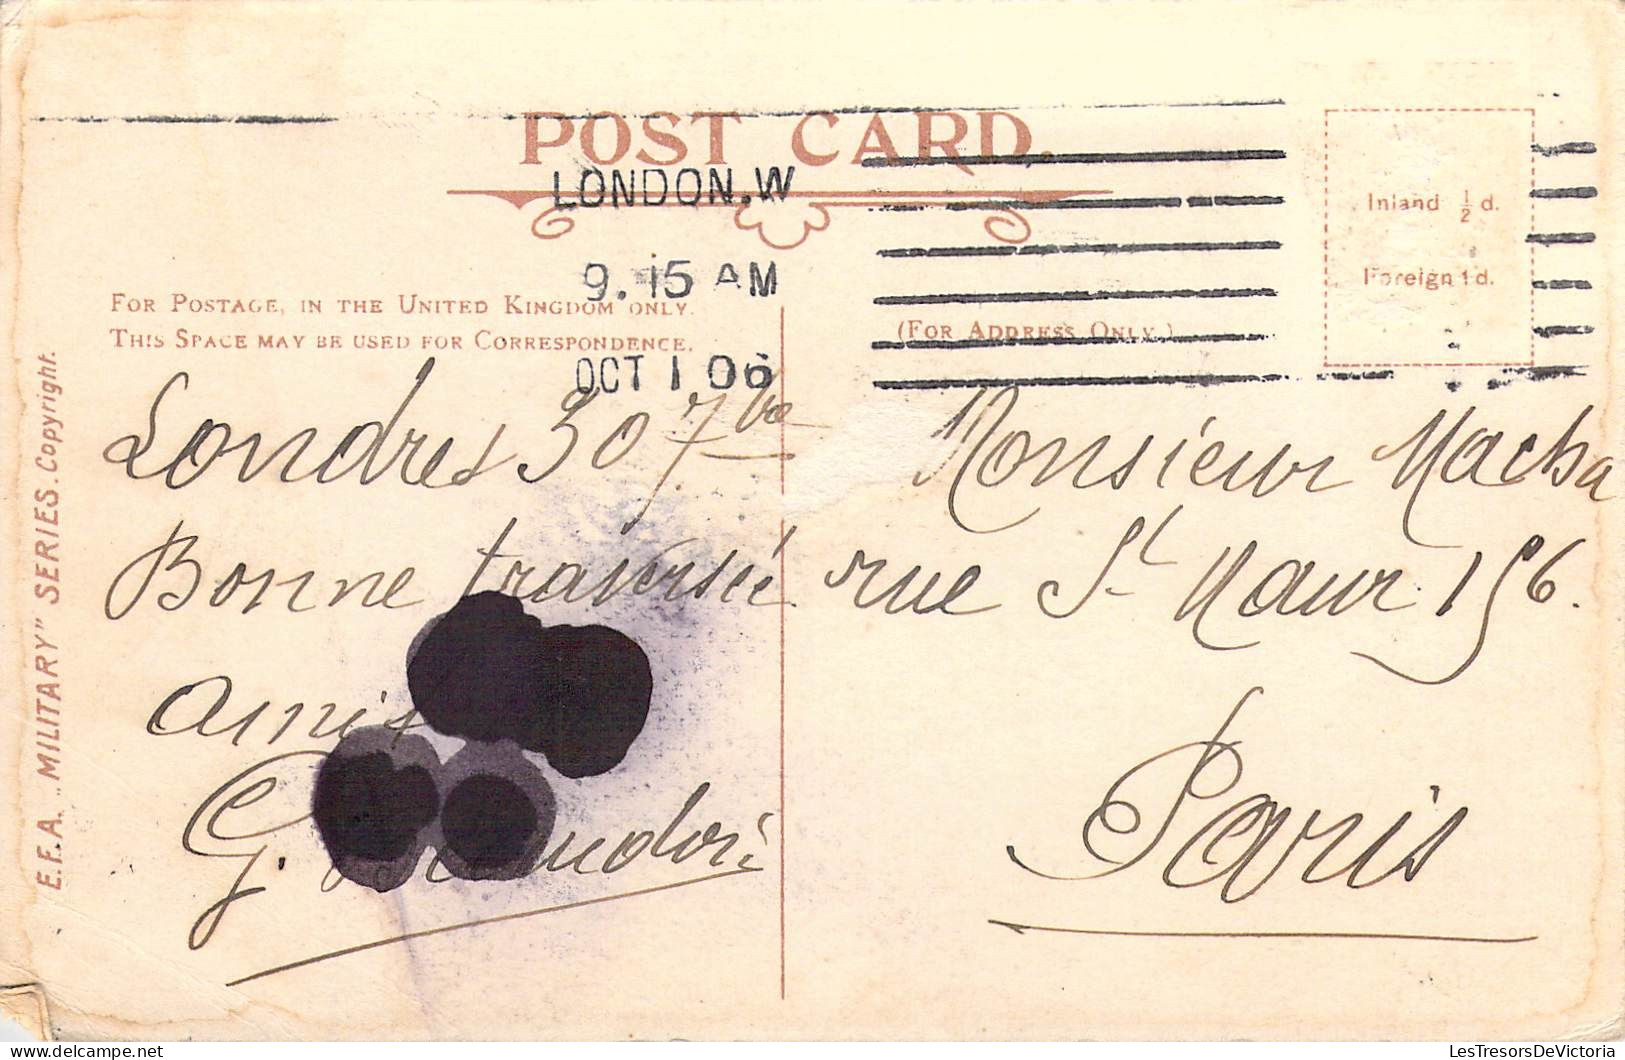 POST CARD.
LONDON.W
9.15 AM
OCT 1 06
Inland ½ d.
Foreign 1d.
FOR POSTAGE, IN THE UNITED KINGDOM ONLY.
THIS SPACE MAY BE USED FOR CORRESPONDENCE.
(FOR ADDRESS ONLY.)
E.F.A. „MILITARY" SERIES. Copyright.
Londres 30 7bre
Bonne traversée
amis
G.
Monsieur Macha
rue St Maur 156.
Paris
LesTresorsDeVictoria